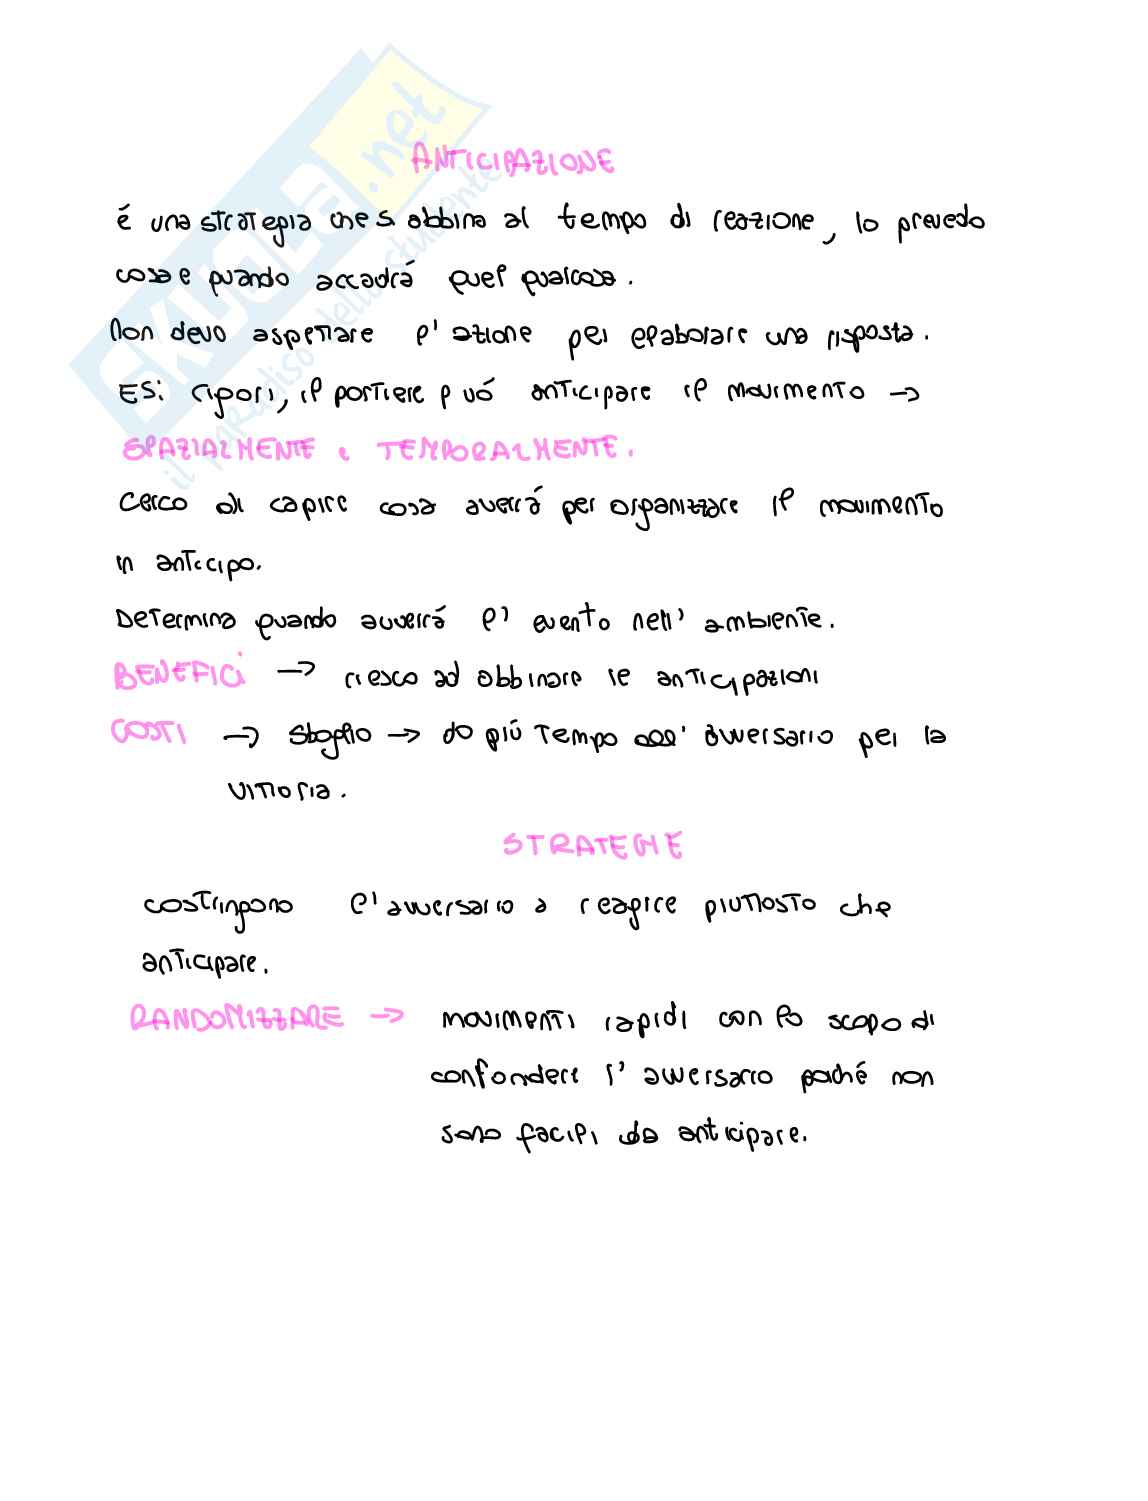 SKUOLA.net
il paradiso dello studente
ANTICIPAZIONE
é una strategia che s abbina al tempo di reazione, lo prevedo
cosa e quando accadrá quel qualcosa.
Non devo aspettare l'azione per elaborare una risposta.
ES: rigori, il portiere puó anticipare il movimento →
SPAZIALMENTE e TEMPORALMENTE.
Cerco di capire cosa averrá per organizzare il movimento
in anticipo.
Determina quando avverrá l'evento nell'ambiente.
BENEFICI → riesco ad abbinare le anticipazioni
COSTI → sbaglio → do più tempo all'avversario per la
vittoria.
STRATEGIE
costringono l'avversario a reagire piuttosto che
anticipare.
RANDOMIZZARE → movimenti rapidi con lo scopo di
confondere l'avversario poiché non
sono facili da anticipare.